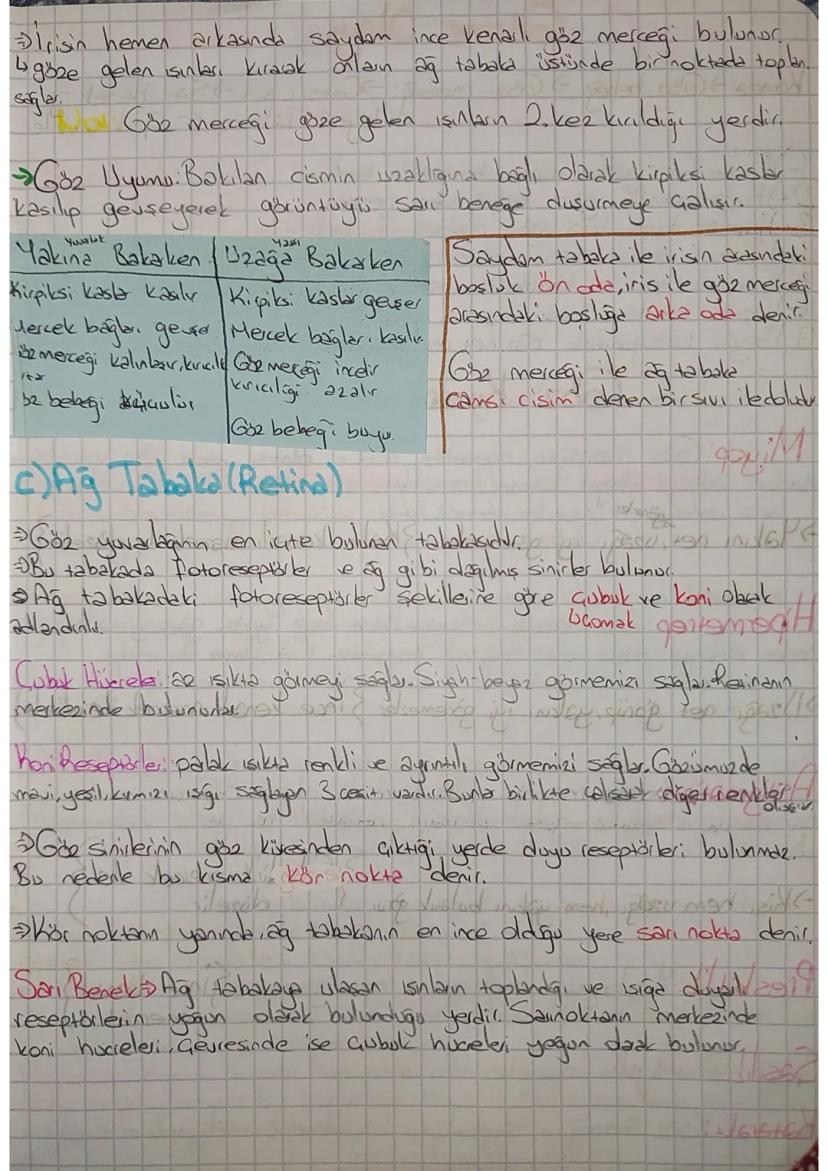 ⇒İrisin hemen arkasında saydam ince kenarlı göz merceği bulunur.
↳göze gelen ışınları kırarak onların ağ tabaka üstünde bir noktada toplan.
sağlar.
Not Göz merceği göze gelen ışınların 2.kez kırıldığı yerdir.
→Göz Uyumu: Bakılan cismin uzaklığına bağlı olarak kirpiksi kaslar
kasılıp gevşeyerek görüntüyü sarı beneğe düşürmeye çalışır.
Yuvarlak
Yakına Bakarken
Kirpiksi kaslar kasılır
Mercek bağları gevşer
Göz merceği kalınlaşır, kırıcılı
artar
öz bebeği küçülür
Yassı
Uzağa Bakarken
Kipiksi kaslar gevşer
Mercek bağları kasılır
Göz merceği incelir
kırıcılığı azalır
Göz bebeği büyür.
Saydam tabaka ile irisin arasındaki
boşluk ön oda, iris ile göz merceği
arasındaki boşluğa arka oda denir.
Göz merceği ile ağ tabaka
camsı cisim denen bir sıvı ile doludur
c) Ağ Tabaka (Retina)
⇒Göz yuvarlağının en içte bulunan tabakasıdır.
⇒Bu tabakada fotoreseptörler ve ağ gibi dağılmış sinirler bulunur.
⇒Ağ tabakadaki fotoreseptörler şekillerine göre çubuk ve koni olarak
adlandırılır.
Çubuk Hücreler: az ışıkta görmeyi sağlar. Siyah-beyaz görmemizi sağlar. Retinanın
merkezinde bulunurlar.
Koni Reseptörleri: parlak ışıkta renkli ve ayrıntılı görmemizi sağlar. Gözümüzde
mavi, yeşil, kırmızı ışığı sağlayan 3 çeşit vardır. Bunlar birlikte çalışarak diğer renkler
oluşur.
⇒Göz sinirlerinin göz küresinden çıktığı yerde duyu reseptörleri bulunmaz.
Bu nedenle bu kısma kör nokta denir.
⇒Kör noktanın yanında, ağ tabakanın en ince olduğu yere sarı nokta denir.
Sarı Benek⇒ Ağ tabakaya ulaşan ışınların toplandığı ve ışığa duyarlı
reseptörlerin yoğun olarak bulunduğu yerdir. Sarı noktanın merkezinde
koni hücreleri, çevresinde ise çubuk hücreler yoğun olarak bulunur.